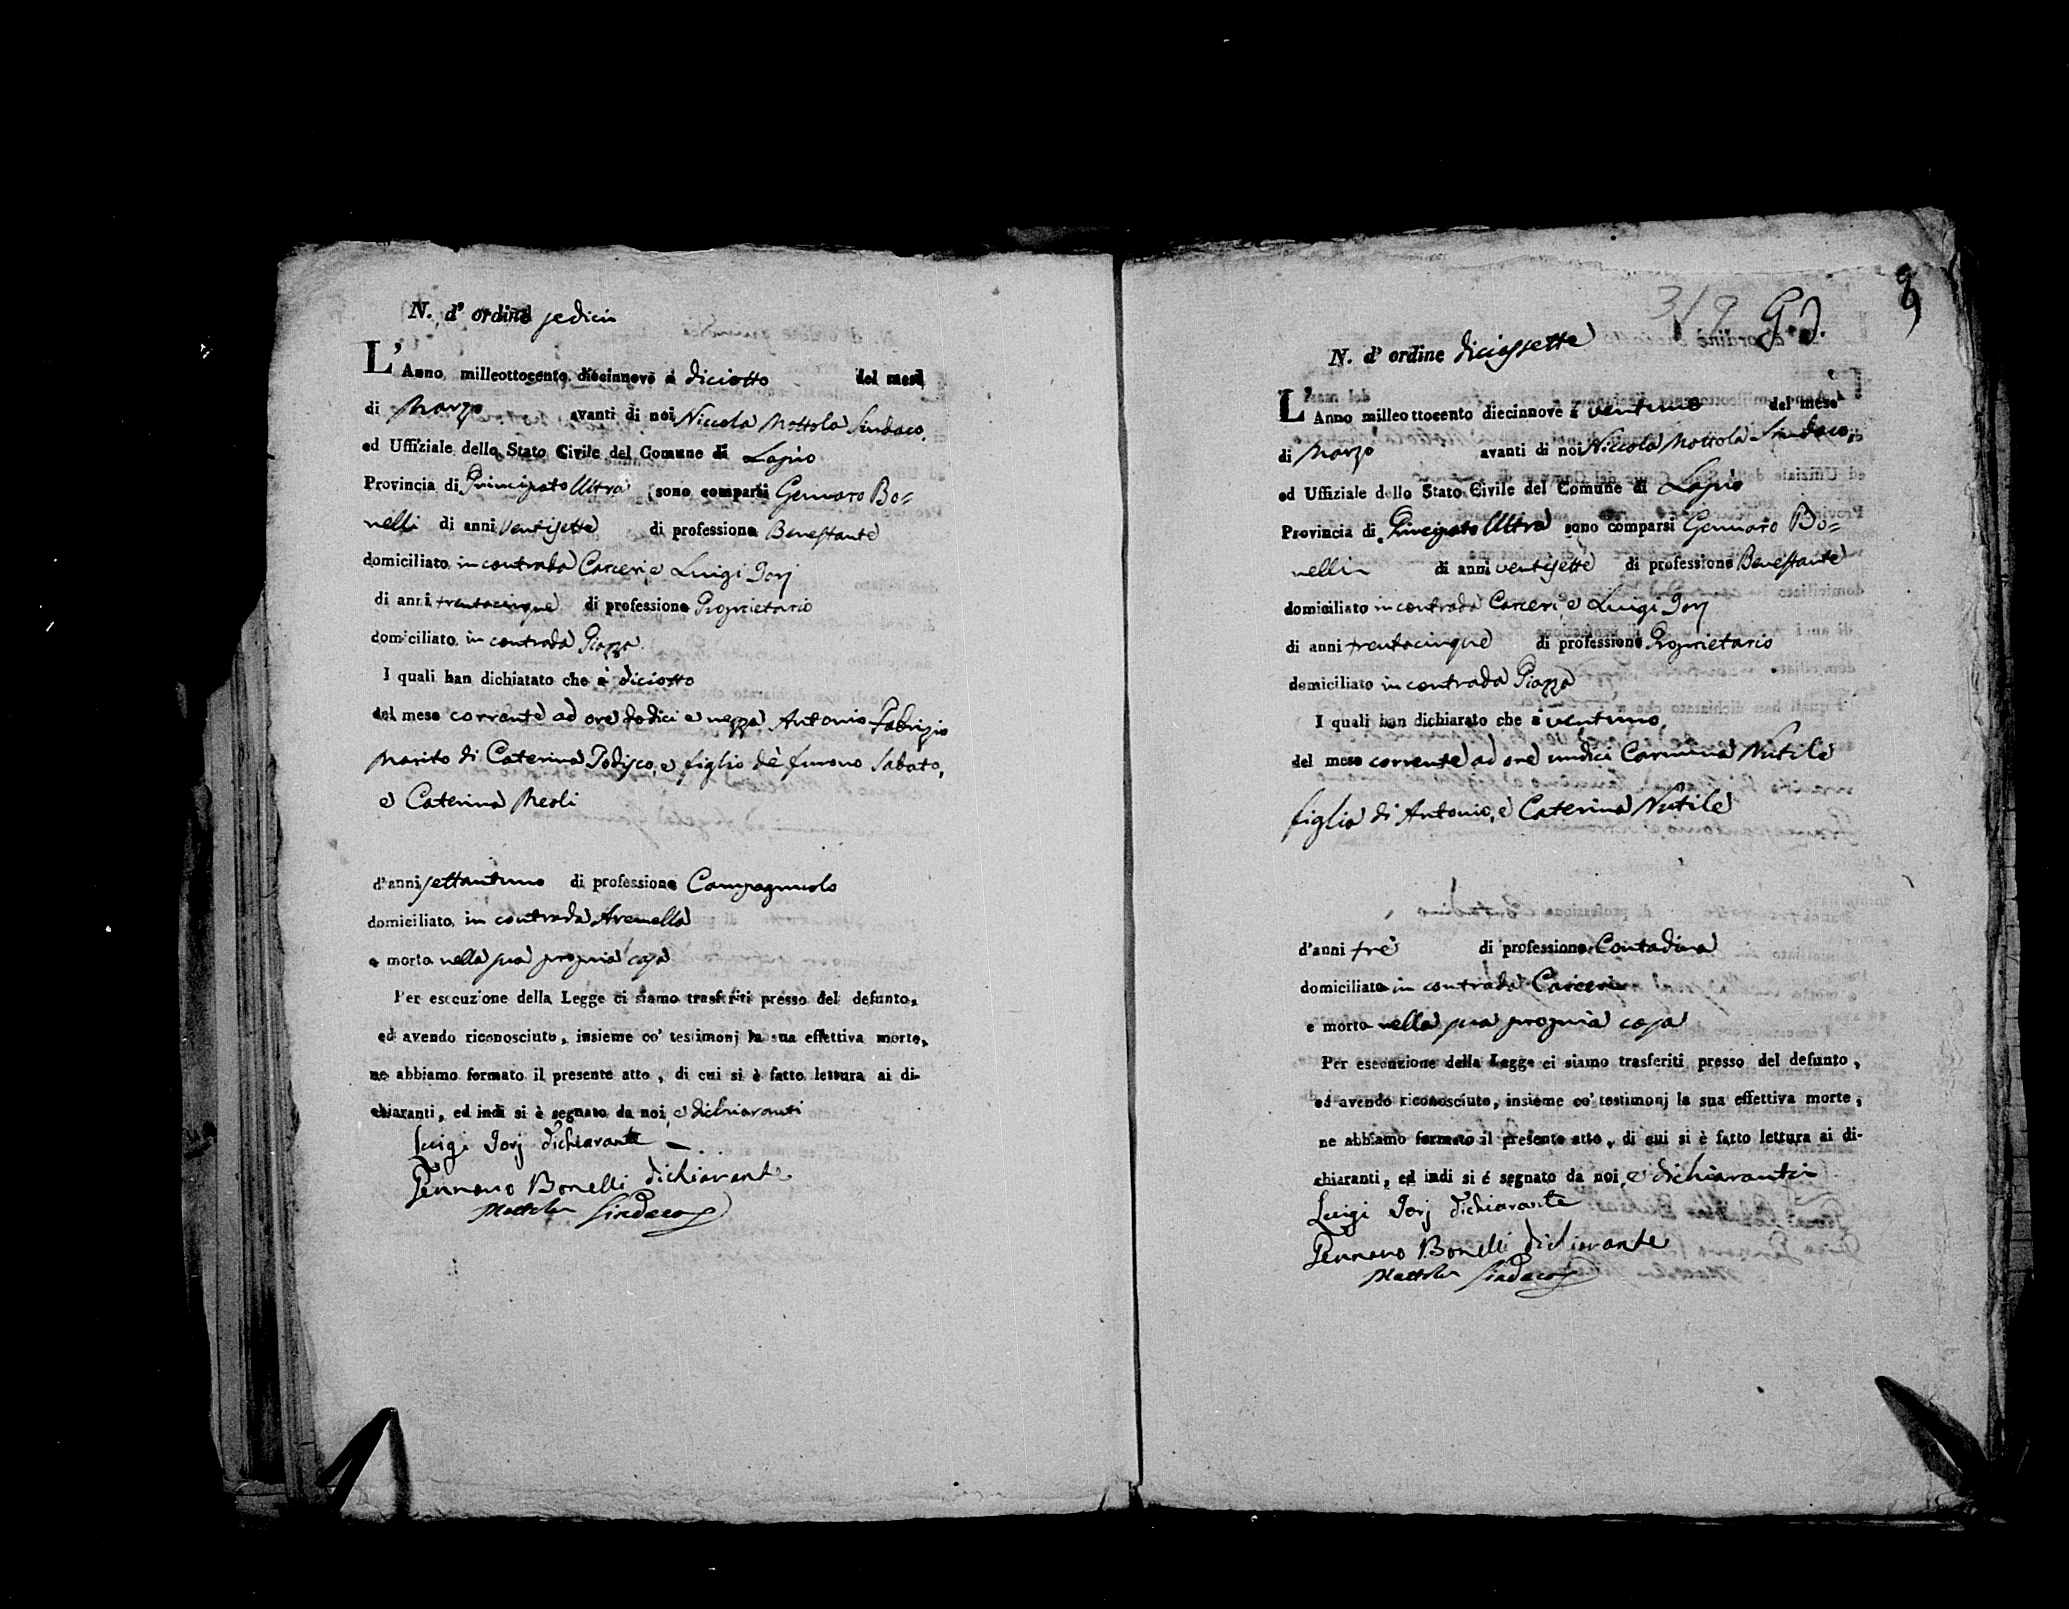 N. d' ordine sedici
L' Anno milleottocento diecinnove a diciotto del mese
di Marzo avanti di noi Niccola Mottola Sindaco,
ed Uffiziale dello Stato Civile del Comune di Lapio
Provincia di Principato Ultra sono comparsi Gennaro Bo=
nelli di anni ventisette di professione Benestante
domiciliato in contrada Carceri, e Luigi Jorj
di anni trentacinque di professione Proprietario
domiciliato in contrada Piazza
I quali han dichiatato che a diciotto
del mese corrente ad ore dodici e mezza Antonio Fabrizio
Marito di Caterina Todisco, e figlio de' furono Sabato,
e Caterina Meoli
d'anni settantuno di professione Campagnuolo
domiciliato in contrada Arenella
e morto nella sua propria casa
Per esecuzione della Legge ci siamo trasferiti presso del defunto,
ed avendo riconosciuto, insieme co' testimonj la sua effettiva morte,
ne abbiamo formato il presente atto, di cui si è fatto lettura ai di-
chiaranti, ed indi si è segnato da noi, e dichiaranti
Luigi Jorj dichiarante
Gennaro Bonelli dichiarante
Mottola Sindaco
319
9
N. d' ordine diciassette
L' Anno milleottocento diecinnove a ventuno del mese
di Marzo avanti di noi Niccola Mottola Sindaco,
ed Uffiziale dello Stato Civile del Comune di Lapio
Provincia di Principato Ultra sono comparsi Gennaro Bo=
nelli di anni ventisette di professione Benestante
domiciliato in contrada Carceri, e Luigi Jorj
di anni trentacinque di professione Proprietario
domiciliato in contrada Piazza
I quali han dichiarato che a ventuno,
del mese corrente ad ore undici Carmina Nutile
figlia di Antonio, e Caterina Nutile
d'anni tre di professione Contadina
domiciliato in contrada Carceri
e morto nella sua propria casa
Per esecuzione della Legge ci siamo trasferiti presso del defunto,
ed avendo riconosciuto, insieme co' testimonj la sua effettiva morte,
ne abbiamo formato il presente atto, di cui si è fatto lettura ai di-
chiaranti, ed indi si é segnato da noi, e dichiaranti
Luigi Jorj dichiarante
Gennaro Bonelli dichiarante
Mottola Sindaco